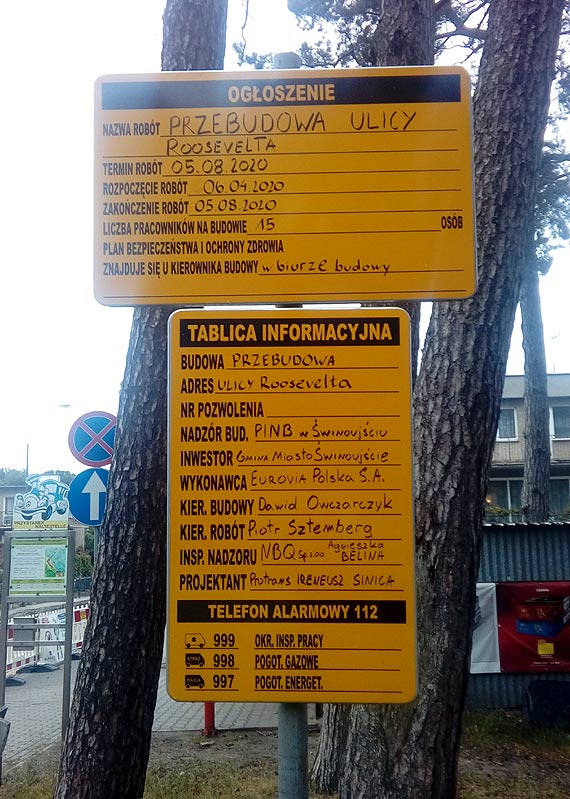 OGŁOSZENIE
NAZWA ROBÓT PRZEBUDOWA ULICY
ROOSEVELTA
TERMIN ROBÓT 05.08.2020
ROZPOCZĘCIE ROBÓT 06.04.2020
ZAKOŃCZENIE ROBÓT 05.08.2020
LICZBA PRACOWNIKÓW NA BUDOWIE 15 OSÓB
PLAN BEZPIECZEŃSTWA I OCHRONY ZDROWIA
ZNAJDUJE SIĘ U KIEROWNIKA BUDOWY w biurze budowy
TABLICA INFORMACYJNA
BUDOWA PRZEBUDOWA
ADRES ULICY Roosevelta
NR POZWOLENIA
NADZÓR BUD. PINB w Świnoujściu
INWESTOR Gmina Miasto Świnoujście
WYKONAWCA Eurovia Polska S.A.
KIER. BUDOWY Dawid Owczarczyk
KIER. ROBÓT Piotr Sztemberg
INSP. NADZORU NBQ Sp. z o.o Agnieszka BELINA
PROJEKTANT Protrams IRENEUSZ SINICA
TELEFON ALARMOWY 112
999 OKR. INSP. PRACY
STRAŻ 998 POGOT. GAZOWE
POLICJA 997 POGOT. ENERGET.
PRZYSTANEK
HALTESTELLE